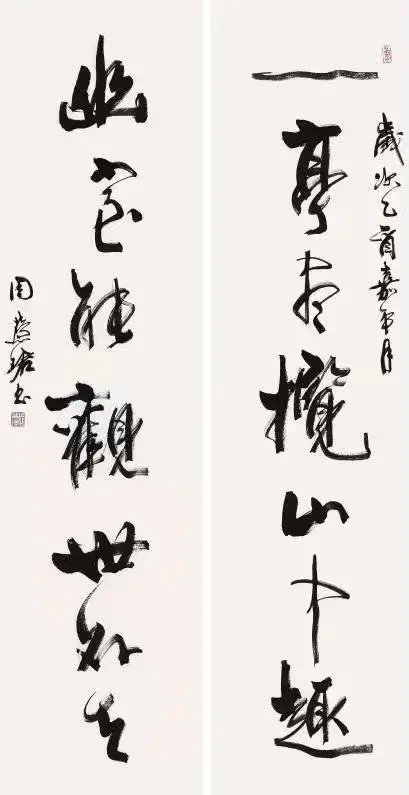 歲次乙酉嘉平月
一亭盡攬山中趣
幽室能觀世外天
周慧珺書